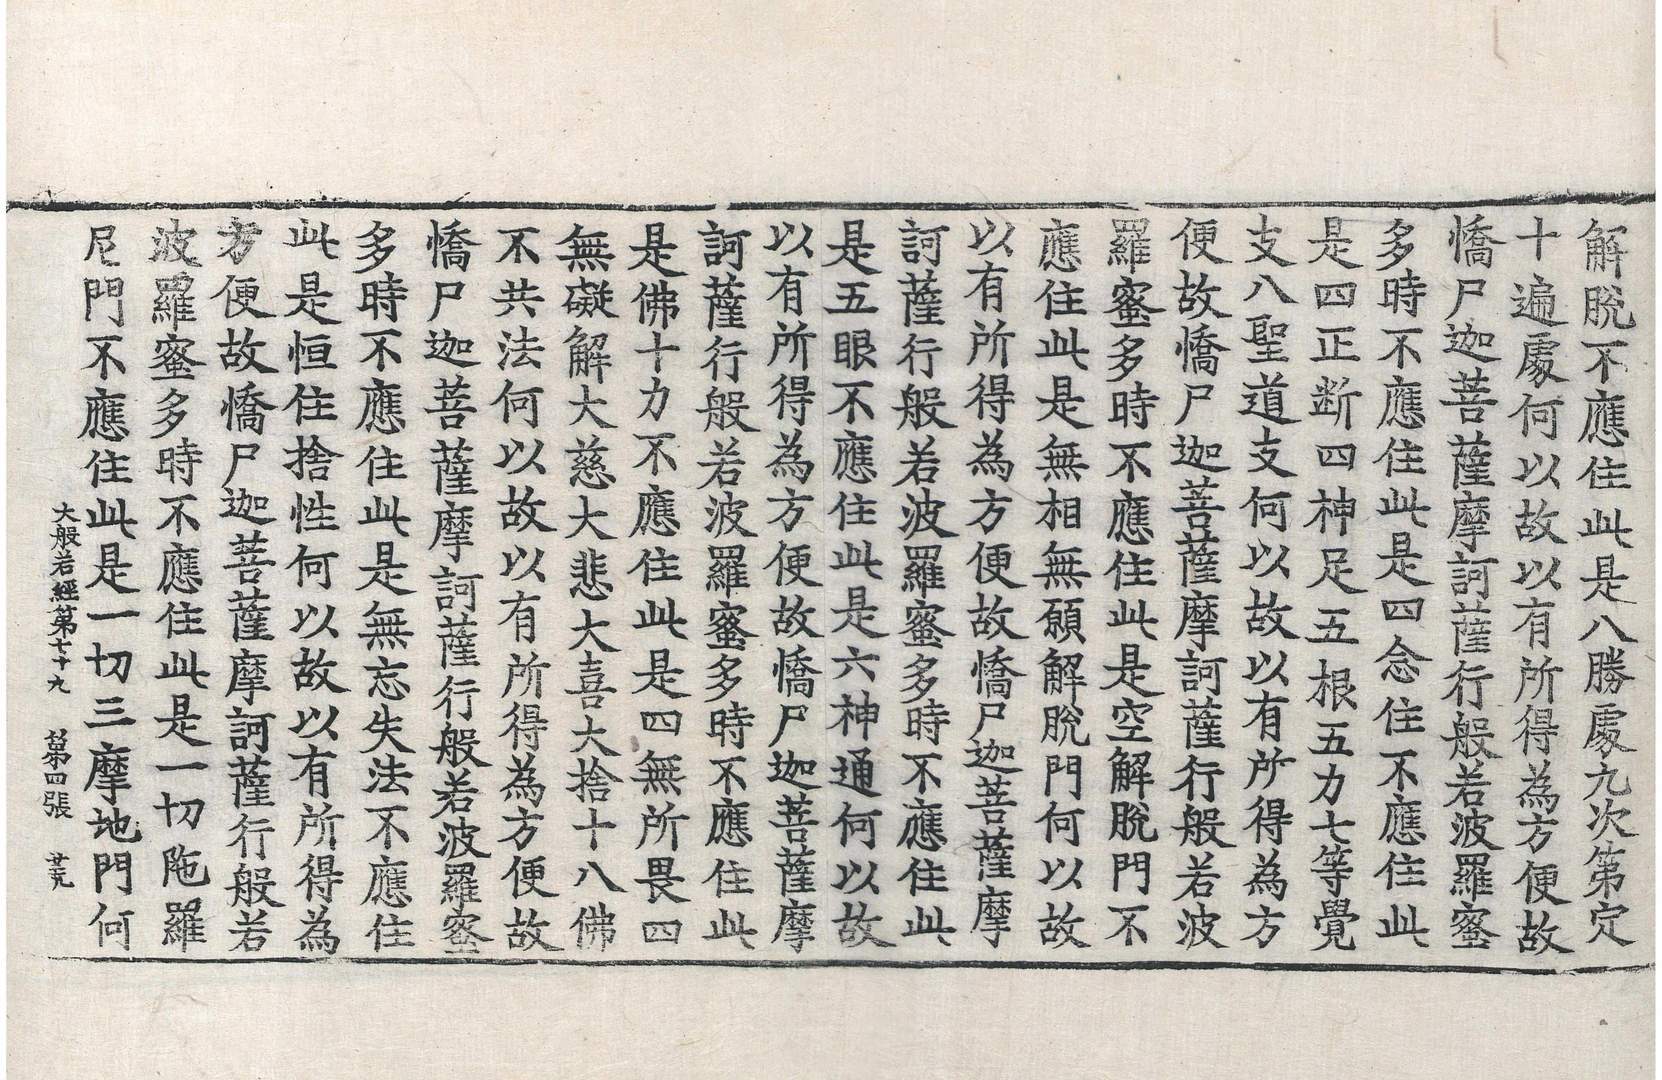 解脫不應住此是八勝處九次第定
十遍處何以故以有所得為方便故
憍尸迦菩薩摩訶薩行般若波羅蜜
多時不應住此是四念住不應住此
是四正断四神足五根五力七等覺
支八聖道支何以故以有所得為方
便故憍尸迦菩薩摩訶薩行般若波
羅蜜多時不應住此是空解脫門不
應住此是無相無願解脫門何以故
以有所得為方便故憍尸迦菩薩摩
訶薩行般若波羅蜜多時不應住此
是五眼不應住此是六神通何以故
以有所得為方便故憍尸迦菩薩摩
訶薩行般若波羅蜜多時不應住此
是佛十力不應住此是四無所畏四
無礙解大慈大悲大喜大捨十八佛
不共法何以故以有所得為方便故
憍尸迦菩薩摩訶薩行般若波羅蜜
多時不應住此是無忘失法不應住
此是恒住捨性何以故以有所得為
方便故憍尸迦菩薩摩訶薩行般若
波羅蜜多時不應住此是一切陁羅
尼門不應住此是一切三摩地門何
大般若經第七十九 第四張 荒